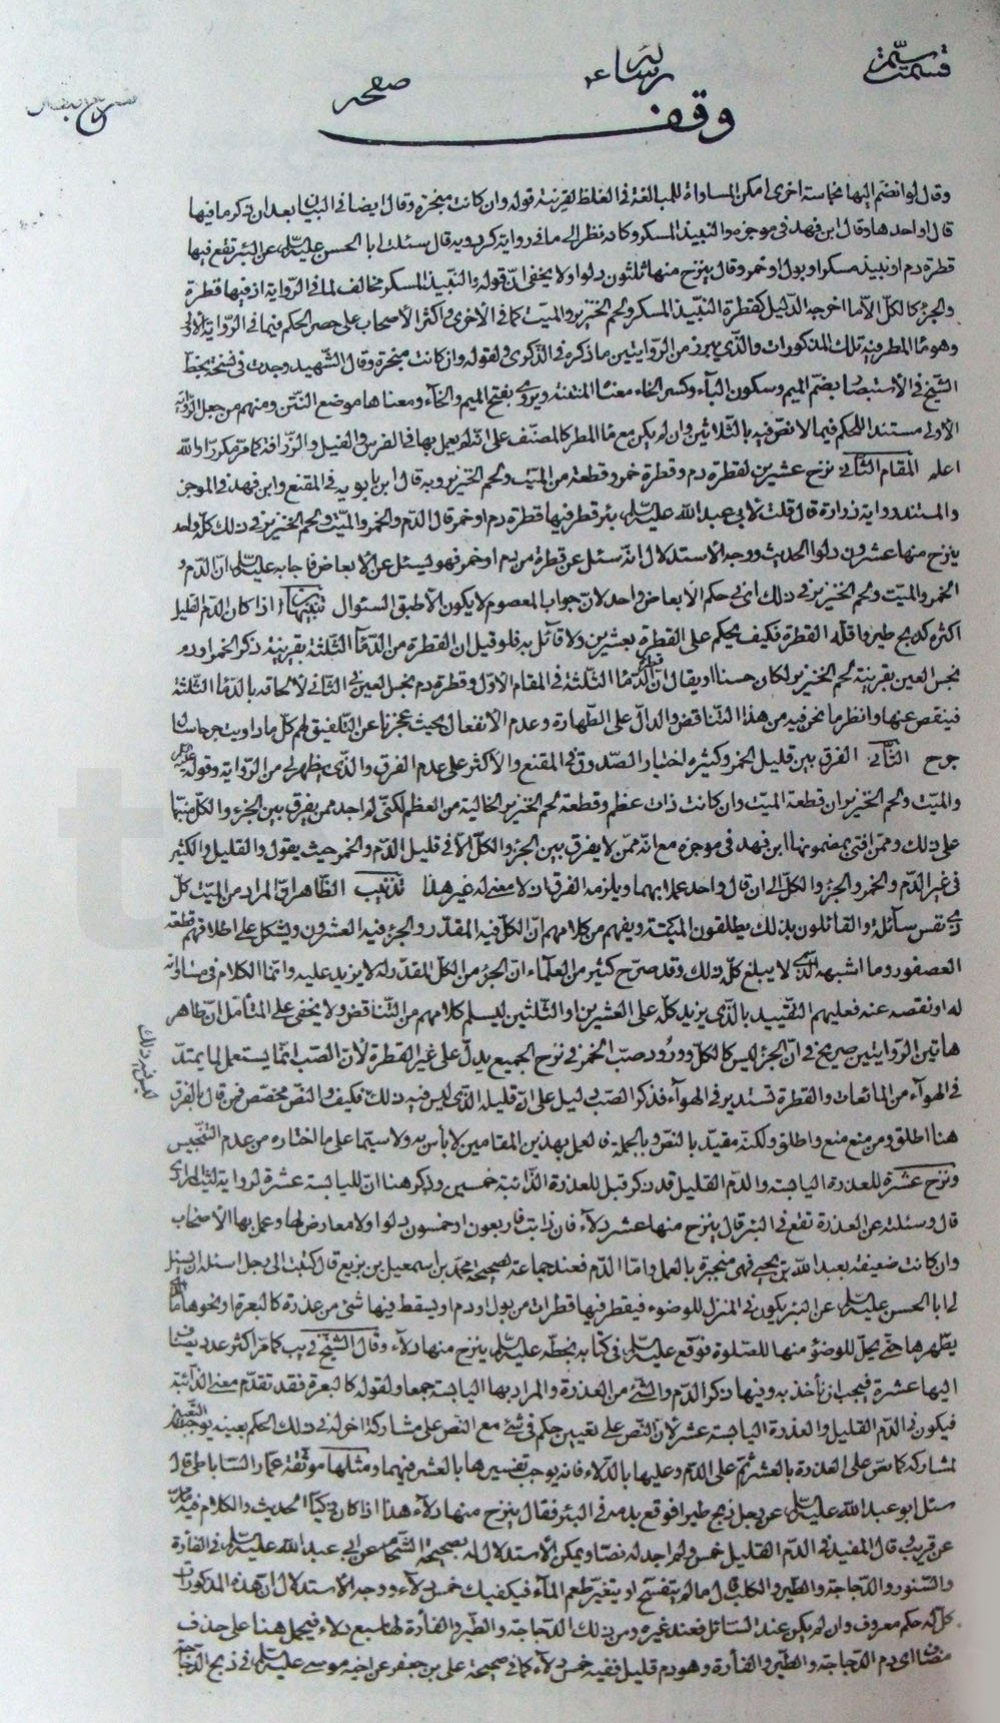 رساله
صفحه
وقف
وقال لو انضم إليها نجاسة اخرى امكن المساواة للمبالغة في الغلظ لقرينة قوله وان كانت منجرة وقال ايضا في البيان بعد ان ذكر ما فيها
قال او احدها وقال ابن فهد في موجزه والنبيذ المسكر وكانه نظر الى ما في رواية كردويه قال سئلت ابا الحسن عليه السلام عن البئر تقع فيها
قطرة دم او نبيذ مسكر او بول او خمر وقال ينزح منها ثلثون دلوا ولا يخفى ان قوله والنبيذ المسكر مخالف لما في الرواية اذ فيها قطرة
والجزء كالكل الا ما اخرجه الدليل كقطرة النبيذ المسكر ولحم الخنزير والميت كما في الاخرى واكثر الاصحاب على حصر الحكم فيما في الرواية الاولى
وهو ماء المطر فيه تلك المذكورات والذي يبرز من الروايتين ما ذكره في الذكرى لقوله وان كانت منجرة وقال الشهيد وجدت في نسخة بخط
الشيخ في الاستبصار بضم الميم وسكون الباء وكسر الخاء معناها المنتنة ويروى بفتح الميم والخاء ومعناها موضع النتن ومنهم من جعل الرواية
الاولى مستندا للحكم فيما لا نص فيه بالثلاثين وان لم يكن مع ماء المطر كالمصنف على انه لم يعمل بها في الفرس والفيل والزرافة كما مر مكررا والله
اعلم المقام الثاني نزح عشرين لقطرة دم وقطرة خمر وقطعة من الميت ولحم الخنزير وبه قال ابن بابويه في المقنع وابن فهد في الموجز
والمستند رواية زرارة قال قلت لابي عبد الله عليه السلام بئر قطر فيها قطرة دم او خمر قال الدم والخمر والميت ولحم الخنزير في ذلك كله واحد
ينزح منها عشرون دلوا الحديث ووجه الاستدلال انه سئل عن قطرة من دم او خمر فهو ليسئل عن الابعاض فاجابه عليه السلام ان الدم و
الخمر والميت ولحم الخنزير في ذلك اي في حكم الابعاض واحد لان جواب المعصوم لا يكون الا طبق السئوال تنبيهان ا اذا كان الدم القليل
اكثره كذبح طير واقله القطرة فكيف يحكم على القطرة بعشرين ولا قائل به فلو قيل ان القطرة من الدماء الثلثة بقرينة ذكر الخمر او دم
نجس العين بقرينة لحم الخنزير لكان حسنا او يقال ان الدماء الثلثة في المقام الاول وقطرة دم نجس العين في الثاني لالحاقه بالدماء الثلثة
فينقص عنها وانظر ما نحن فيه من هذا التناقض والدال على الطهارة وعدم الانفعال بحيث عجزنا عن التلفيق لهم كل ما داويت جرحا سال
جرح الثاني الفرق بين قليل الخمر وكثيره اختيار الصدوق في المقنع والاكثر على عدم الفرق والذي يظهر لي من الرواية وقوله
والميت ولحم الخنزير ان قطعة الميت وان كانت ذات عظم وقطعة لحم الخنزير الخالية من العظم لكني لم اجد من يفرق بين الجزء والكل
على ذلك وممن افتى بمضمونها ابن فهد في موجزه مع انه ممن لا يفرق بين الجزء والكل الا في قليل الدم والخمر حيث يقول والقليل والكثير
في غير الدم والخمر والجزء والكل الى ان قال واحد عملا بهما ويلزمه الفرق اذ لا معنى له غير هذا تذنيب الظاهر ان المراد من الميت كل
ذي نفس سائلة والقائلون بذلك يطلقون الميتة ويفهم من كلامهم ان الكل فيه المقدر والجزء فيه العشرون ويشكل على اطلاقهم قطعة
العصفور وما اشبهه الذي لا يبلغ كله ذلك وقد صرح كثير من العلماء ان الجزء من الكل المقدر له لا يزيد عليه وانما الكلام في مساواته
له او نقصه عنه فعليهم التقييد بالذي يزيد كله على العشرين او الثلثين ليسلم كلامهم من التناقض ولا يخفى على المتأمل ان ظاهر
هاتين الروايتين صريح في ان الجزء ليس كالكل وورود صب الخمر في نزح الجميع يدل على غير القطرة لان الصب انما يستعمل لما يمتد
في الهواء من المائعات والقطرة تستدير في الهواء فذكر الصب دليل على ان قليله الذي ليس فيه ذلك فكيف والنص مختص فمن قال بالفرق
هنا اطلق ومن منع منع واطلق ولكنه مقيد بالنص وبالجملة فالعمل بهذين المقامين لا بأس به ولا سيما على ما اختاره من عدم التنجيس
ونزح عشرة للعذرة اليابسة والدم القليل قد ذكر قبل للعذرة الذائبة خمسين وذكر هنا ان لليابسة عشرة لرواية ليث المرادي
قال وسئلته عن العذرة تقع في البئر قال ينزح منها عشر دلاء فان ذابت فاربعون او خمسون دلوا ولا معارض لها وعمل بها الاصحاب
وان كانت ضعيفة بعبد الله بن يحيى فهي منجبرة بالعمل واما الدم فعند جماعة لصحيحة محمد بن اسمعيل بن بزيع قال كتبت الى رجل اسئله ان يسئل
لي ابا الحسن عليه السلام عن البئر يكون في المنزل للوضوء فيقطر فيها قطرات من بول او دم او يسقط فيها شئ من عذرة كالبعرة او نحوها ما الذي
يطهرها حتى يحل للوضوء منها للصلوة فوقع عليه السلام في كتابه بخطه عليه السلام ينزح منها دلاء وقال الشيخ في يب كما مر اكثر عدد يضاف
اليها عشرة فيجب ان نأخذ به وفيها ذكر الدم والشئ من العذرة والمراد بها اليابسة جمعا ولقوله كالبعرة فقد تقدم معنى الذائبة
فيكون في الدم القليل والعذرة اليابسة عشر لان النص على تعيين حكم في شئ مع النص على مشاركة اخر له في ذلك الحكم بعينه يوجب التعيين
لمشاركه كما نص على العذرة بالعشر ثم على الدم وعليها بالدلاء فانه يوجب تفسيرها بالعشر فيهما ومثلها موثقة عمار الساباطي قال
سئل ابو عبد الله عليه السلام عن رجل ذبح طيرا فوقع بدمه في البئر فقال ينزح منها دلاء هذا اذا كان ذكيا الحديث والكلام فيه
عن قريب قال المفيد في الدم القليل خمس ولم اجد له نصا ويمكن الاستدلال له بصحيحة الشحام عن ابي عبد الله عليه السلام في الفارة
والسنور والدجاجة والطير والكلب قال ما لم يتفسخ او يتغير طعم الماء فيكفيك خمس دلاء ووجه الاستدلال ان هذه المذكورات
كل له حكم معروف وان لم يكن عند السائل فعند غيره ومن ذلك الدجاجة والطير والفأرة لها سبع دلاء فيحمل هنا على حذف
مضاف اي دم الدجاجة والطير والفأرة وهو دم قليل ففيه خمس دلاء كما في صحيحة علي بن جعفر عن اخيه موسى عليه السلام في ذبح الدجاجة